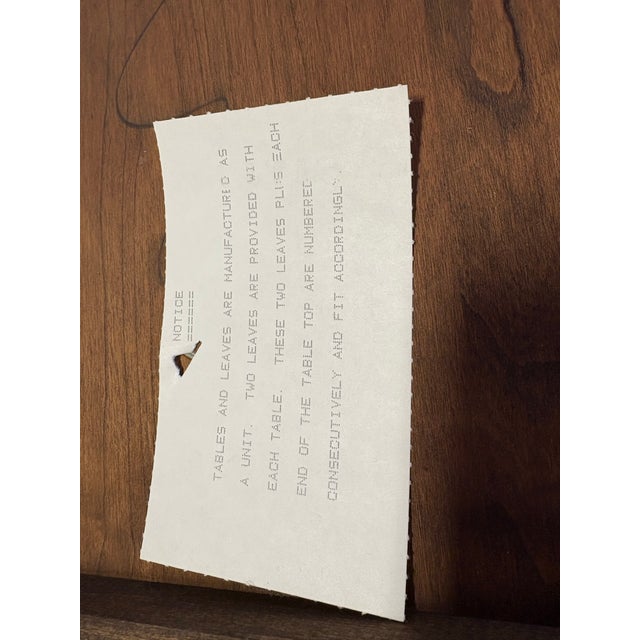 NOTICE
======
TABLES AND LEAVES ARE MANUFACTURED AS
A UNIT. TWO LEAVES ARE PROVIDED WITH
EACH TABLE. THESE TWO LEAVES PLUS EACH
END OF THE TABLE TOP ARE NUMBERED
CONSECUTIVELY AND FIT ACCORDINGLY.